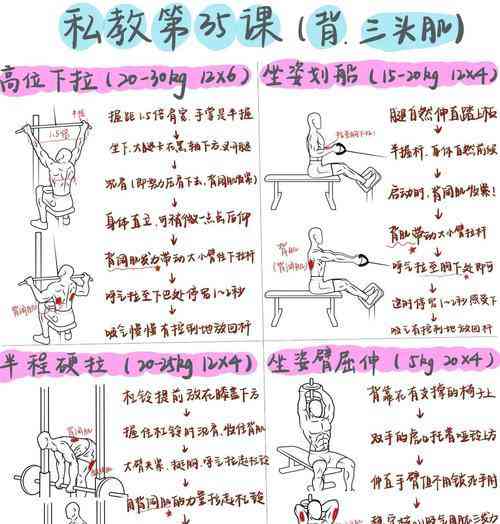 私教第35课 (背、三头肌)
高位下拉 (20-30kg 12x6)
半握
1.5倍
握距1.5倍肩宽,手掌是半握
坐下,大腿卡在黑轴下方,
沉肩 (即
身体直立,可稍微一点点后仰
背阔肌发力带动大小臂往下拉杆
呼气拉至下巴处停留1~2秒
吸气慢慢有控制地放回杆
背阔肌
坐姿划船 (15-20kg 12x4)
腿自然伸直踏上板
半握杆,身体自然前倾
启动时,背阔肌收紧!
背肌带动大小臂拉杆
呼气拉至胸下处即可
这时停留1~2秒感受下
吸气有控制地放回杆
背肌
(背阔肌)
半程硬拉 (20-25kg 12x4)
背阔肌
杠铃提前放在膝盖下方
握住杠铃时沉肩,收住背肌
大臂夹紧,挺胸,呼气拉起杠铃
用背阔肌的力量拉起杠铃
坐姿臂屈伸 (5kg 20x4)
背靠在有支撑的椅子上
双手的虎口托靠哑铃上方
伸直手臂但不用锁死手肘